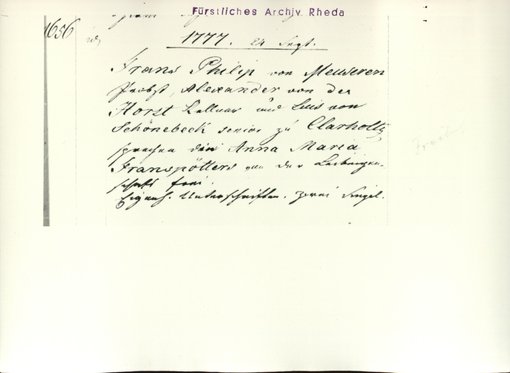 Fürstliches Archiv Rheda
1656
1777. 24 Sept.
Franz Philip von Meuseren
Probst, Alexander von der
Horst Kellner und Luis von
Schönebeck senior zu Clarholtz
sprechen die Anna Maria
Franspöllers von der Leibeigen-
schaft frei.
Eigenh. Unterschriften. zwei Siegel.